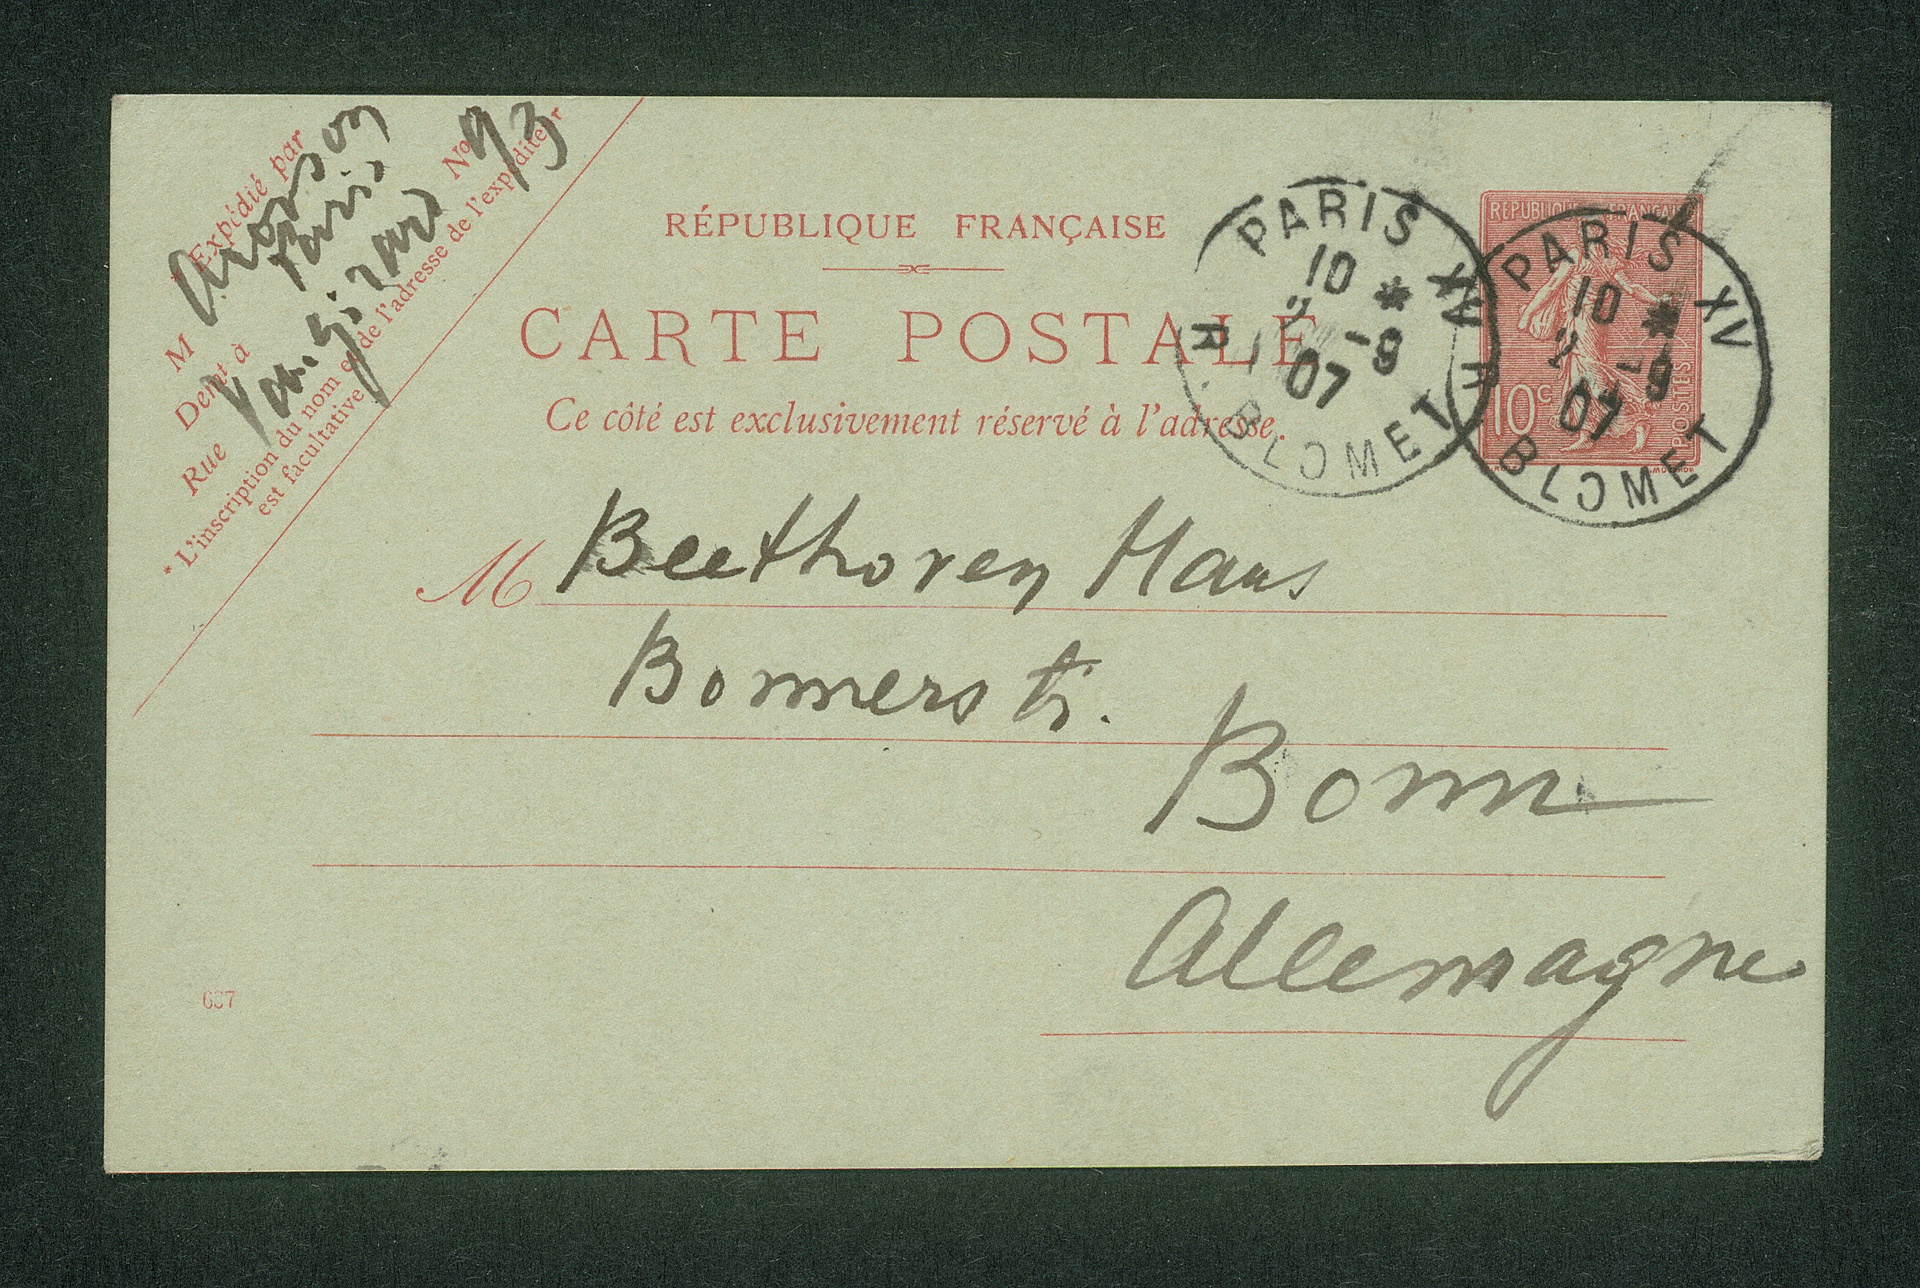 * Expédié par
M Aronson
Demt à Paris
Rue Vaugirard No 93
* L'inscription du nom et de l'adresse de l'expéditeur
est facultative
RÉPUBLIQUE FRANÇAISE
CARTE POSTALE
Ce côté est exclusivement réservé à l'adresse.
PARIS XV
10 *
2 -9
07
R. BLOMET
RÉPUBLIQUE FRANÇAISE
10c
POSTES
PARIS XV
10 *
2 -9
07
BLOMET
M Beethoven Haus
Bonnerstr.
Bonn
Allemagne
637